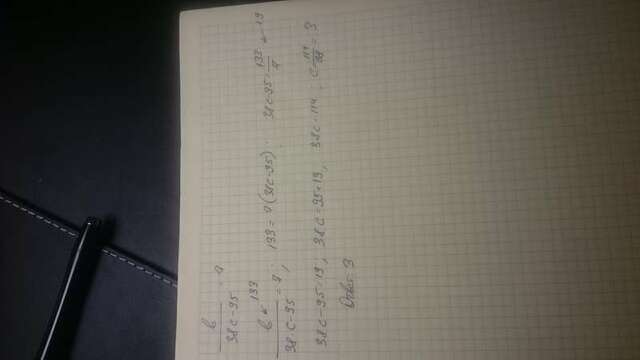 b / 38c-95 = 7
b = 133
133 / 38·c-95 = 7, 133 = 7(38c-95). 38c-95 = 133/7 = 19
38c-95=19, 38c=95+19, 38c=114, c 114/38 = 3
Ответ: 3